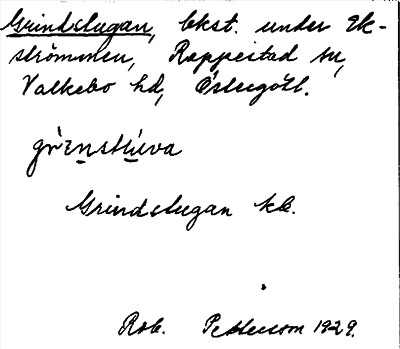 Grindslugan, bkst. under Ek-
strömmen, Rappestad sn,
Valkebo hd, Östergötl.
Grindstugan kb.
Rob. Pettersson 1929.